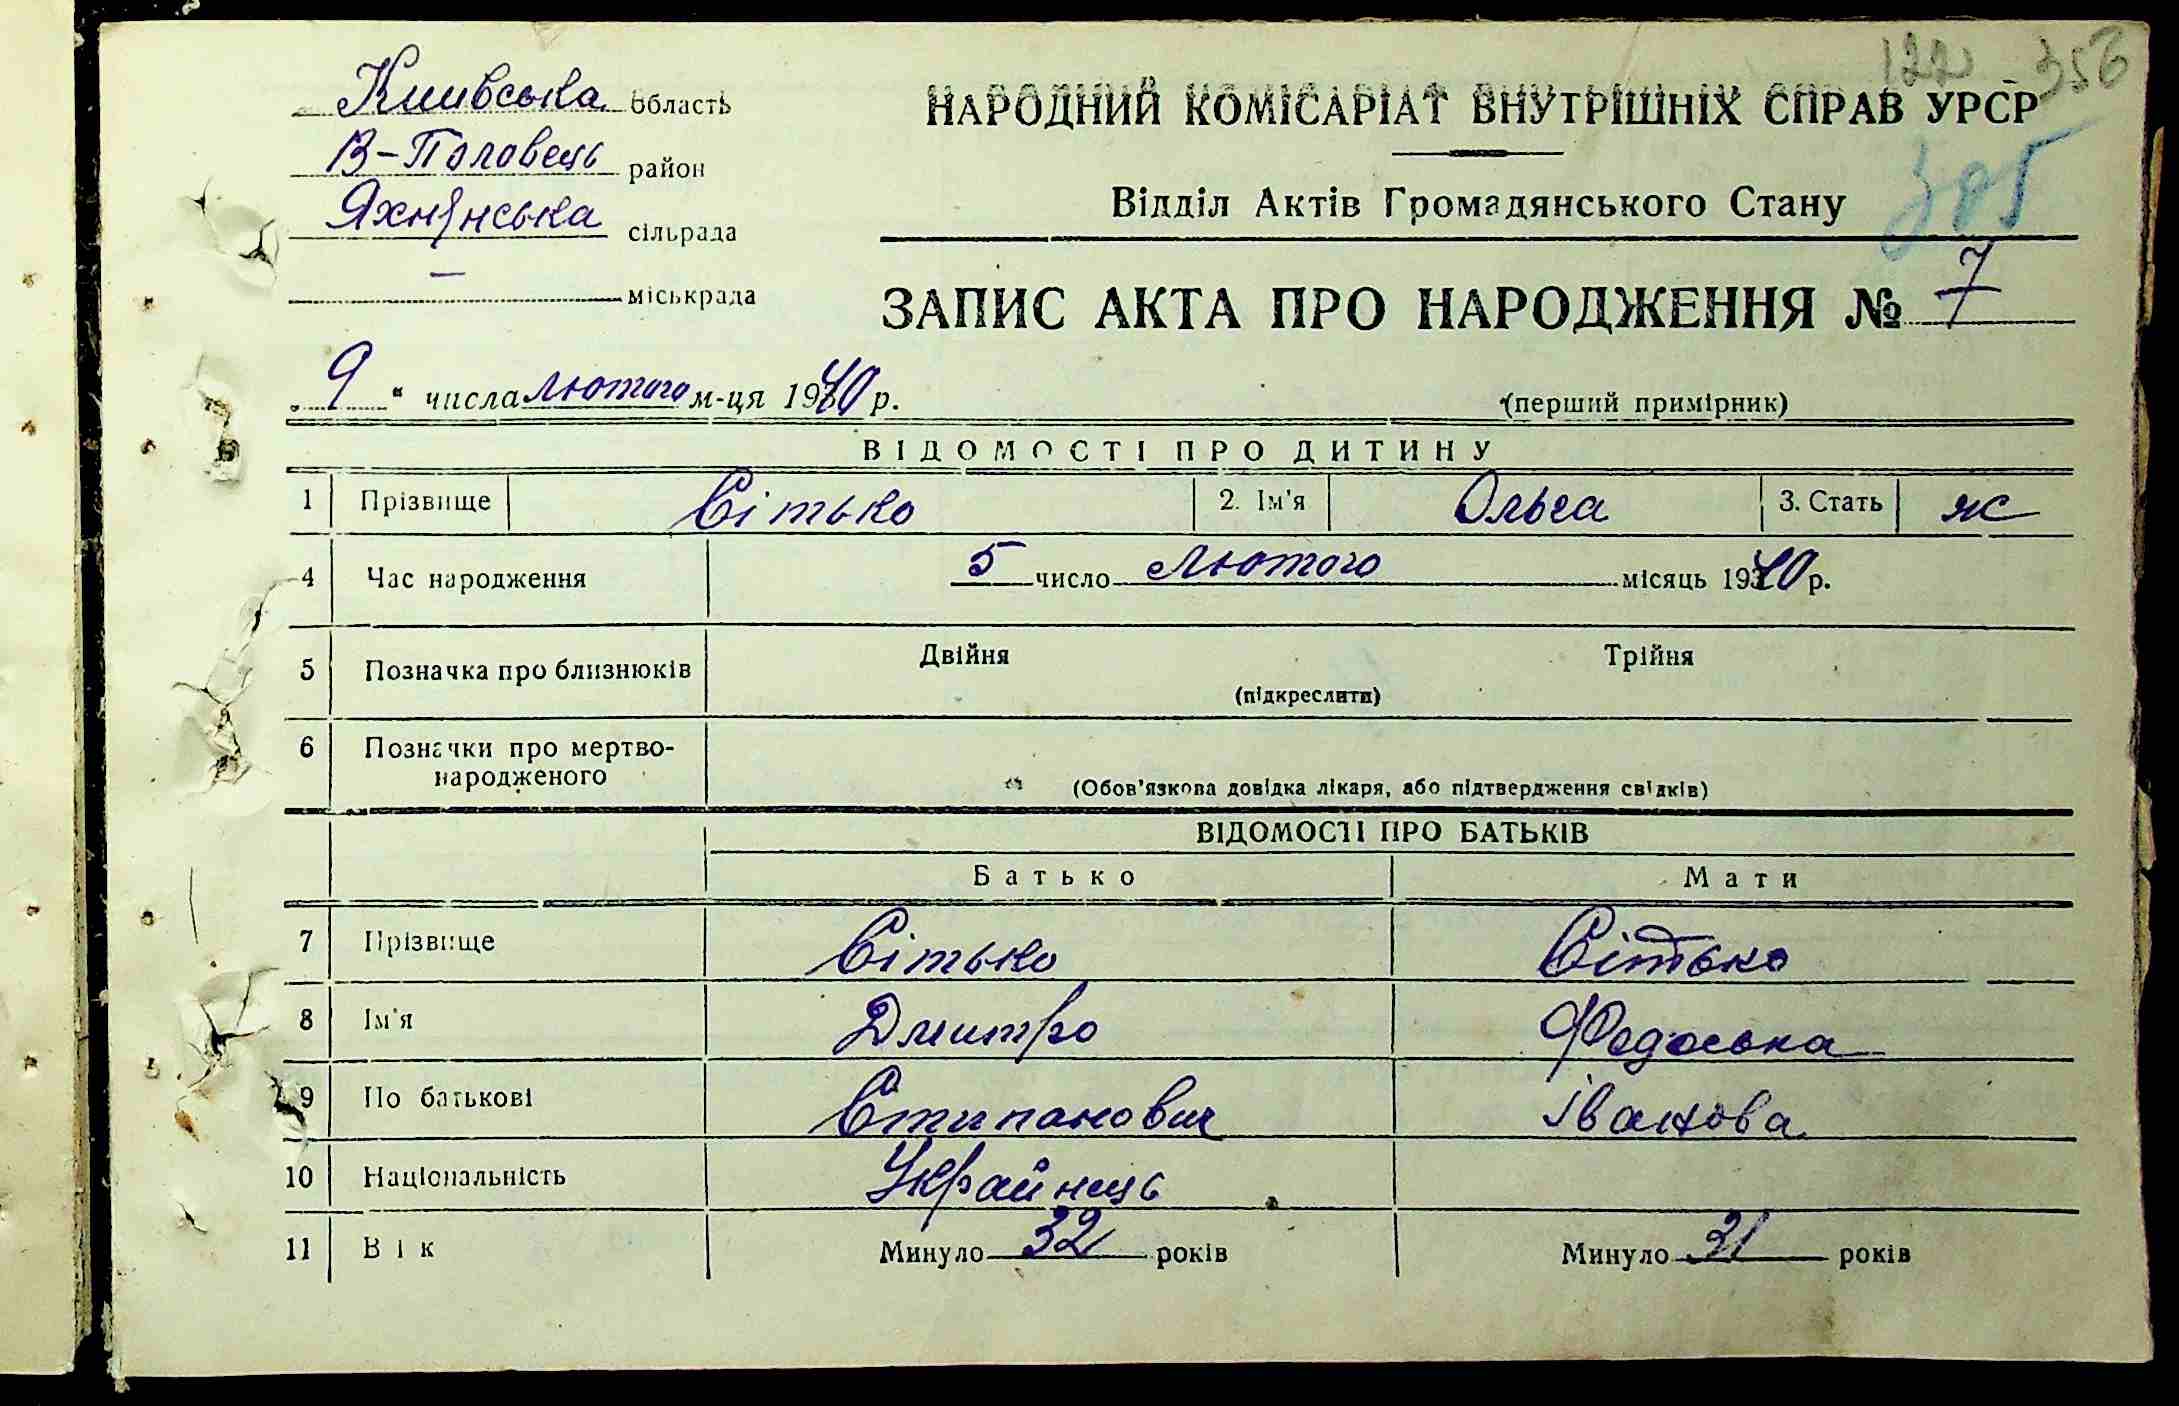 122 356
Киівська область
В-Половець район
Яхнянська сільрада
— міськрада
НАРОДНИЙ КОМІСАРІАТ ВНУТРІШНІХ СПРАВ УРСР
305
Відділ Актів Громадянського Стану
ЗАПИС АКТА ПРО НАРОДЖЕННЯ № 7
„ 9 “ числа лютого м-ця 1940 р.
(перший примірник)
ВІДОМОСТІ ПРО ДИТИНУ
1 Прізвище Сітько 2. Ім'я Ольга 3. Стать ж
4 Час народження 5 число лютого місяць 1940 р.
5 Позначка про близнюків Двійня Трійня
(підкреслити)
6 Позначки про мертво-
народженого
(Обов'язкова довідка лікаря, або підтвердження свідків)
ВІДОМОСТІ ПРО БАТЬКІВ
Батько Мати
7 Прізвище Сітько Сітько
8 Ім'я Дмитро Федоська
9 По батькові Стипанович Івахова
10 Національність Українець
11 Вік Минуло 32 років Минуло 31 років